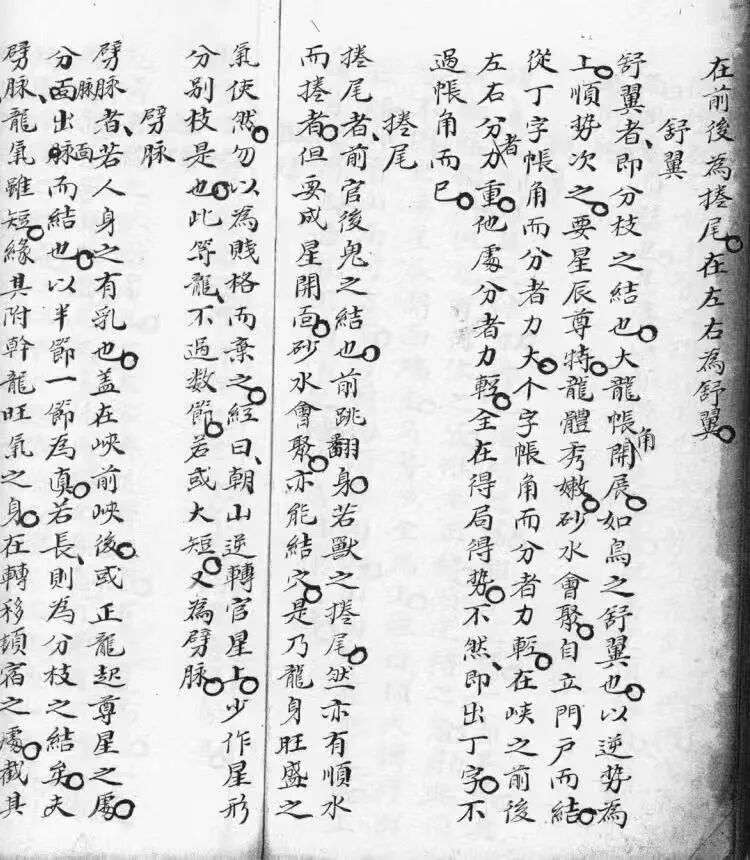 在前後為捲尾。在左右為舒翼。
舒翼
舒翼者、即分枝之結也。大龍帳角開展。如鳥之舒翼也。以逆勢為
上。順勢次之。要星辰尊特。龍體秀嫩。砂水會聚。自立門戶而結。
從丁字帳角而分者力大。个字帳角而分者力輕。在峽之前後
左右分者力重。他處分者力輕。全在得局得勢。不然、即出丁字。不
過帳角而已。
捲尾
捲尾者、前官後鬼之結也。前跳翻身。若獸之捲尾。然亦有順水
而捲者。但要成星開面。砂水會聚。亦能結穴。是乃龍身旺盛之
氣使然。勿以為賤格而棄之。經曰、朝山逆轉官星上。少作星形
分别枝是也。此等龍、不過数節。若或大短。又為劈脉。
劈脉
劈脉者、若人身之有乳也。盖在峽前峽後。或正龍起尊星之處。
分脉面出脉面而結也。以半節一節為真。若長、則為分枝之結矣。夫
劈脉、龍氣雖短。緣其附幹龍旺氣之身。在轉移頓宿之處。截其